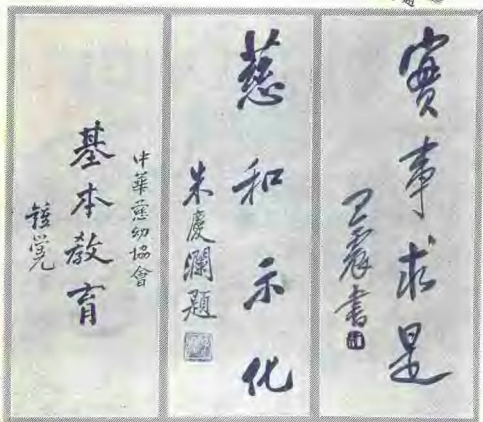 實事求是
王震書
慈和示化
朱慶瀾題
中華慈幼協會
基本教育
鍾覺